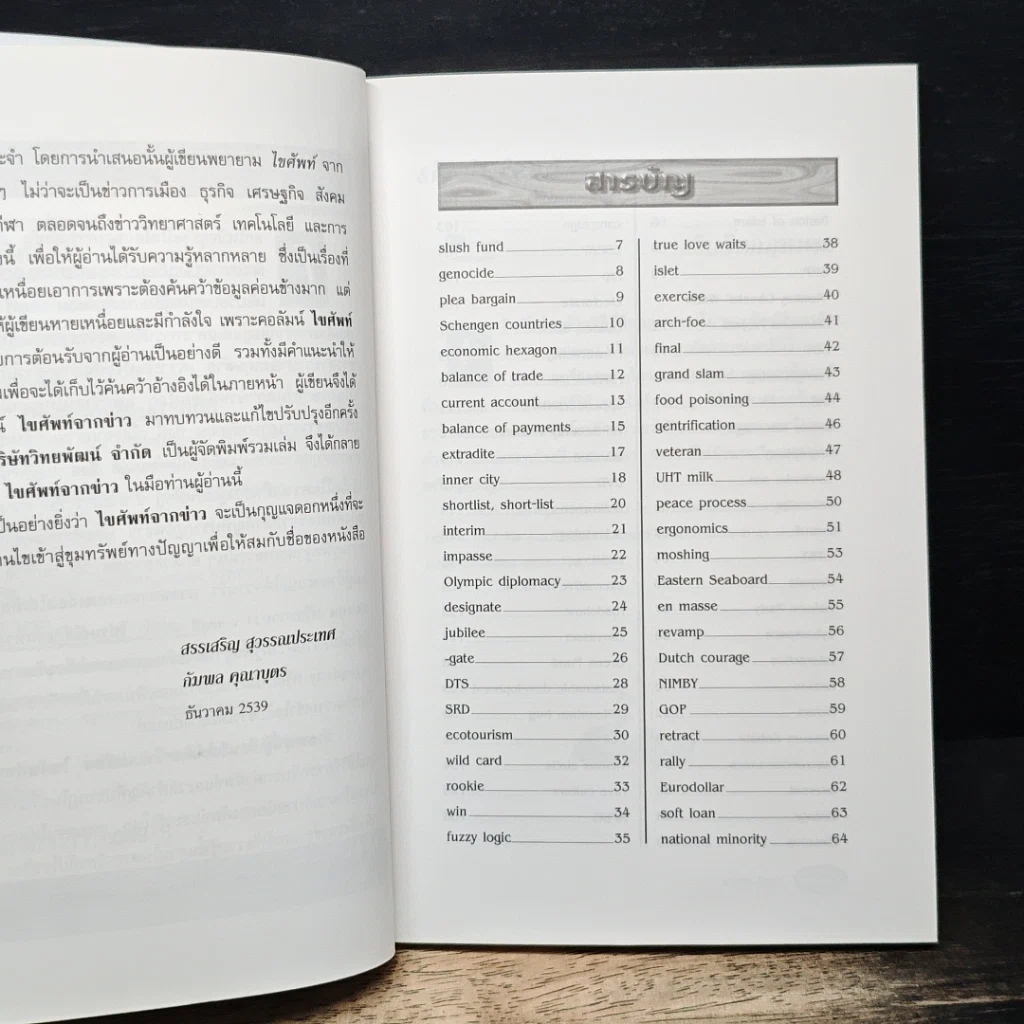 ะจำ โดยการนำเสนอนั้นผู้เขียนพยายาม ไขศัพท์ จาก
ๆ ไม่ว่าจะเป็นข่าวการเมือง ธุรกิจ เศรษฐกิจ สังคม
กีฬา ตลอดจนถึงข่าววิทยาศาสตร์ เทคโนโลยี และการ
งนี้ เพื่อให้ผู้อ่านได้รับความรู้หลากหลาย ซึ่งเป็นเรื่องที่
เหนื่อยเอาการเพราะต้องค้นคว้าข้อมูลค่อนข้างมาก แต่
ห้ผู้เขียนหายเหนื่อยและมีกำลังใจ เพราะคอลัมน์ ไขศัพท์
บการต้อนรับจากผู้อ่านเป็นอย่างดี รวมทั้งมีคำแนะนำให้
มเพื่อจะได้เก็บไว้ค้นคว้าอ้างอิงได้ในภายหน้า ผู้เขียนจึงได้
น์ ไขศัพท์จากข่าว มาทบทวนและแก้ไขปรับปรุงอีกครั้ง
ริษัทวิทยพัฒน์ จำกัด เป็นผู้จัดพิมพ์รวมเล่ม จึงได้กลาย
ไขศัพท์จากข่าว ในมือท่านผู้อ่านนี้
ป็นอย่างยิ่งว่า ไขศัพท์จากข่าว จะเป็นกุญแจดอกหนึ่งที่จะ
านไขเข้าสู่ขุมทรัพย์ทางปัญญาเพื่อให้สมกับชื่อของหนังสือ
สรรเสริญ สุวรรณประเทศ
กัมพล คุณาบุตร
ธันวาคม 2539
สารบัญ
slush fund 7
genocide 8
plea bargain 9
Schengen countries 10
economic hexagon 11
balance of trade 12
current account 13
balance of payments 15
extradite 17
inner city 18
shortlist, short-list 20
interim 21
impasse 22
Olympic diplomacy 23
designate 24
jubilee 25
-gate 26
DTS 28
SRD 29
ecotourism 30
wild card 32
rookie 33
win 34
fuzzy logic 35
true love waits 38
islet 39
exercise 40
arch-foe 41
final 42
grand slam 43
food poisoning 44
gentrification 46
veteran 47
UHT milk 48
peace process 50
ergonomics 51
moshing 53
Eastern Seaboard 54
en masse 55
revamp 56
Dutch courage 57
NIMBY 58
GOP 59
retract 60
rally 61
Eurodollar 62
soft loan 63
national minority 64